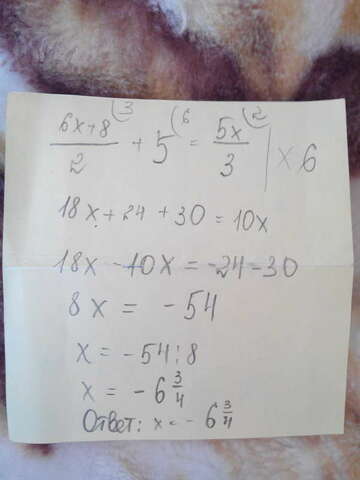 (6x+8)/2 ⁽³ + 5 ⁽⁶ = 5x/3 ⁽² | × 6
18x + 24 + 30 = 10x
18x - 10x = -24 - 30
8x = -54
x = -54 : 8
x = -6 3/4
Ответ: x = -6 3/4